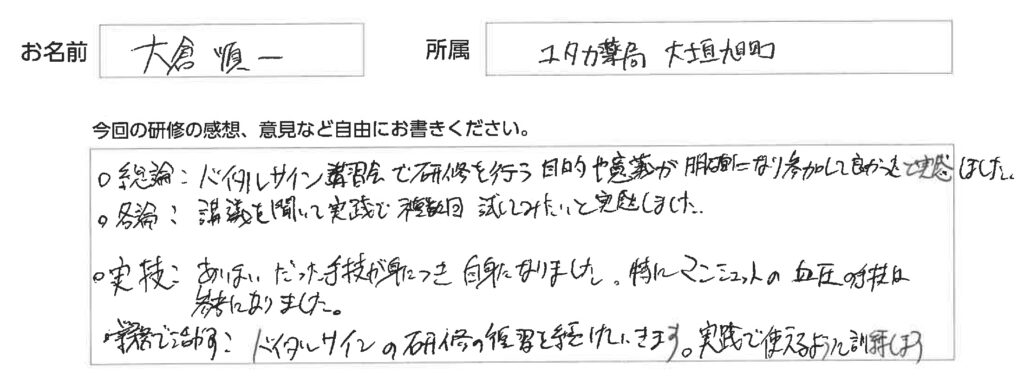 お名前 大倉順一 所属 ユタカ薬局 大垣旭町
今回の研修の感想、意見など自由にお書きください。
○総論：バイタルサイン講習会で研修を行う目的や意義が明確になり参加して良かったと実感しました。
○各論：講義を聞いて実践で複数回試してみたいと実感しました。
○実技：あいまいだった手技が身につき自身になりました。特にマンシェットの血圧の手技は
参考になりました。
○業務で活かす：バイタルサインの研修の復習を続けていきます。実践で使えるように訓練します